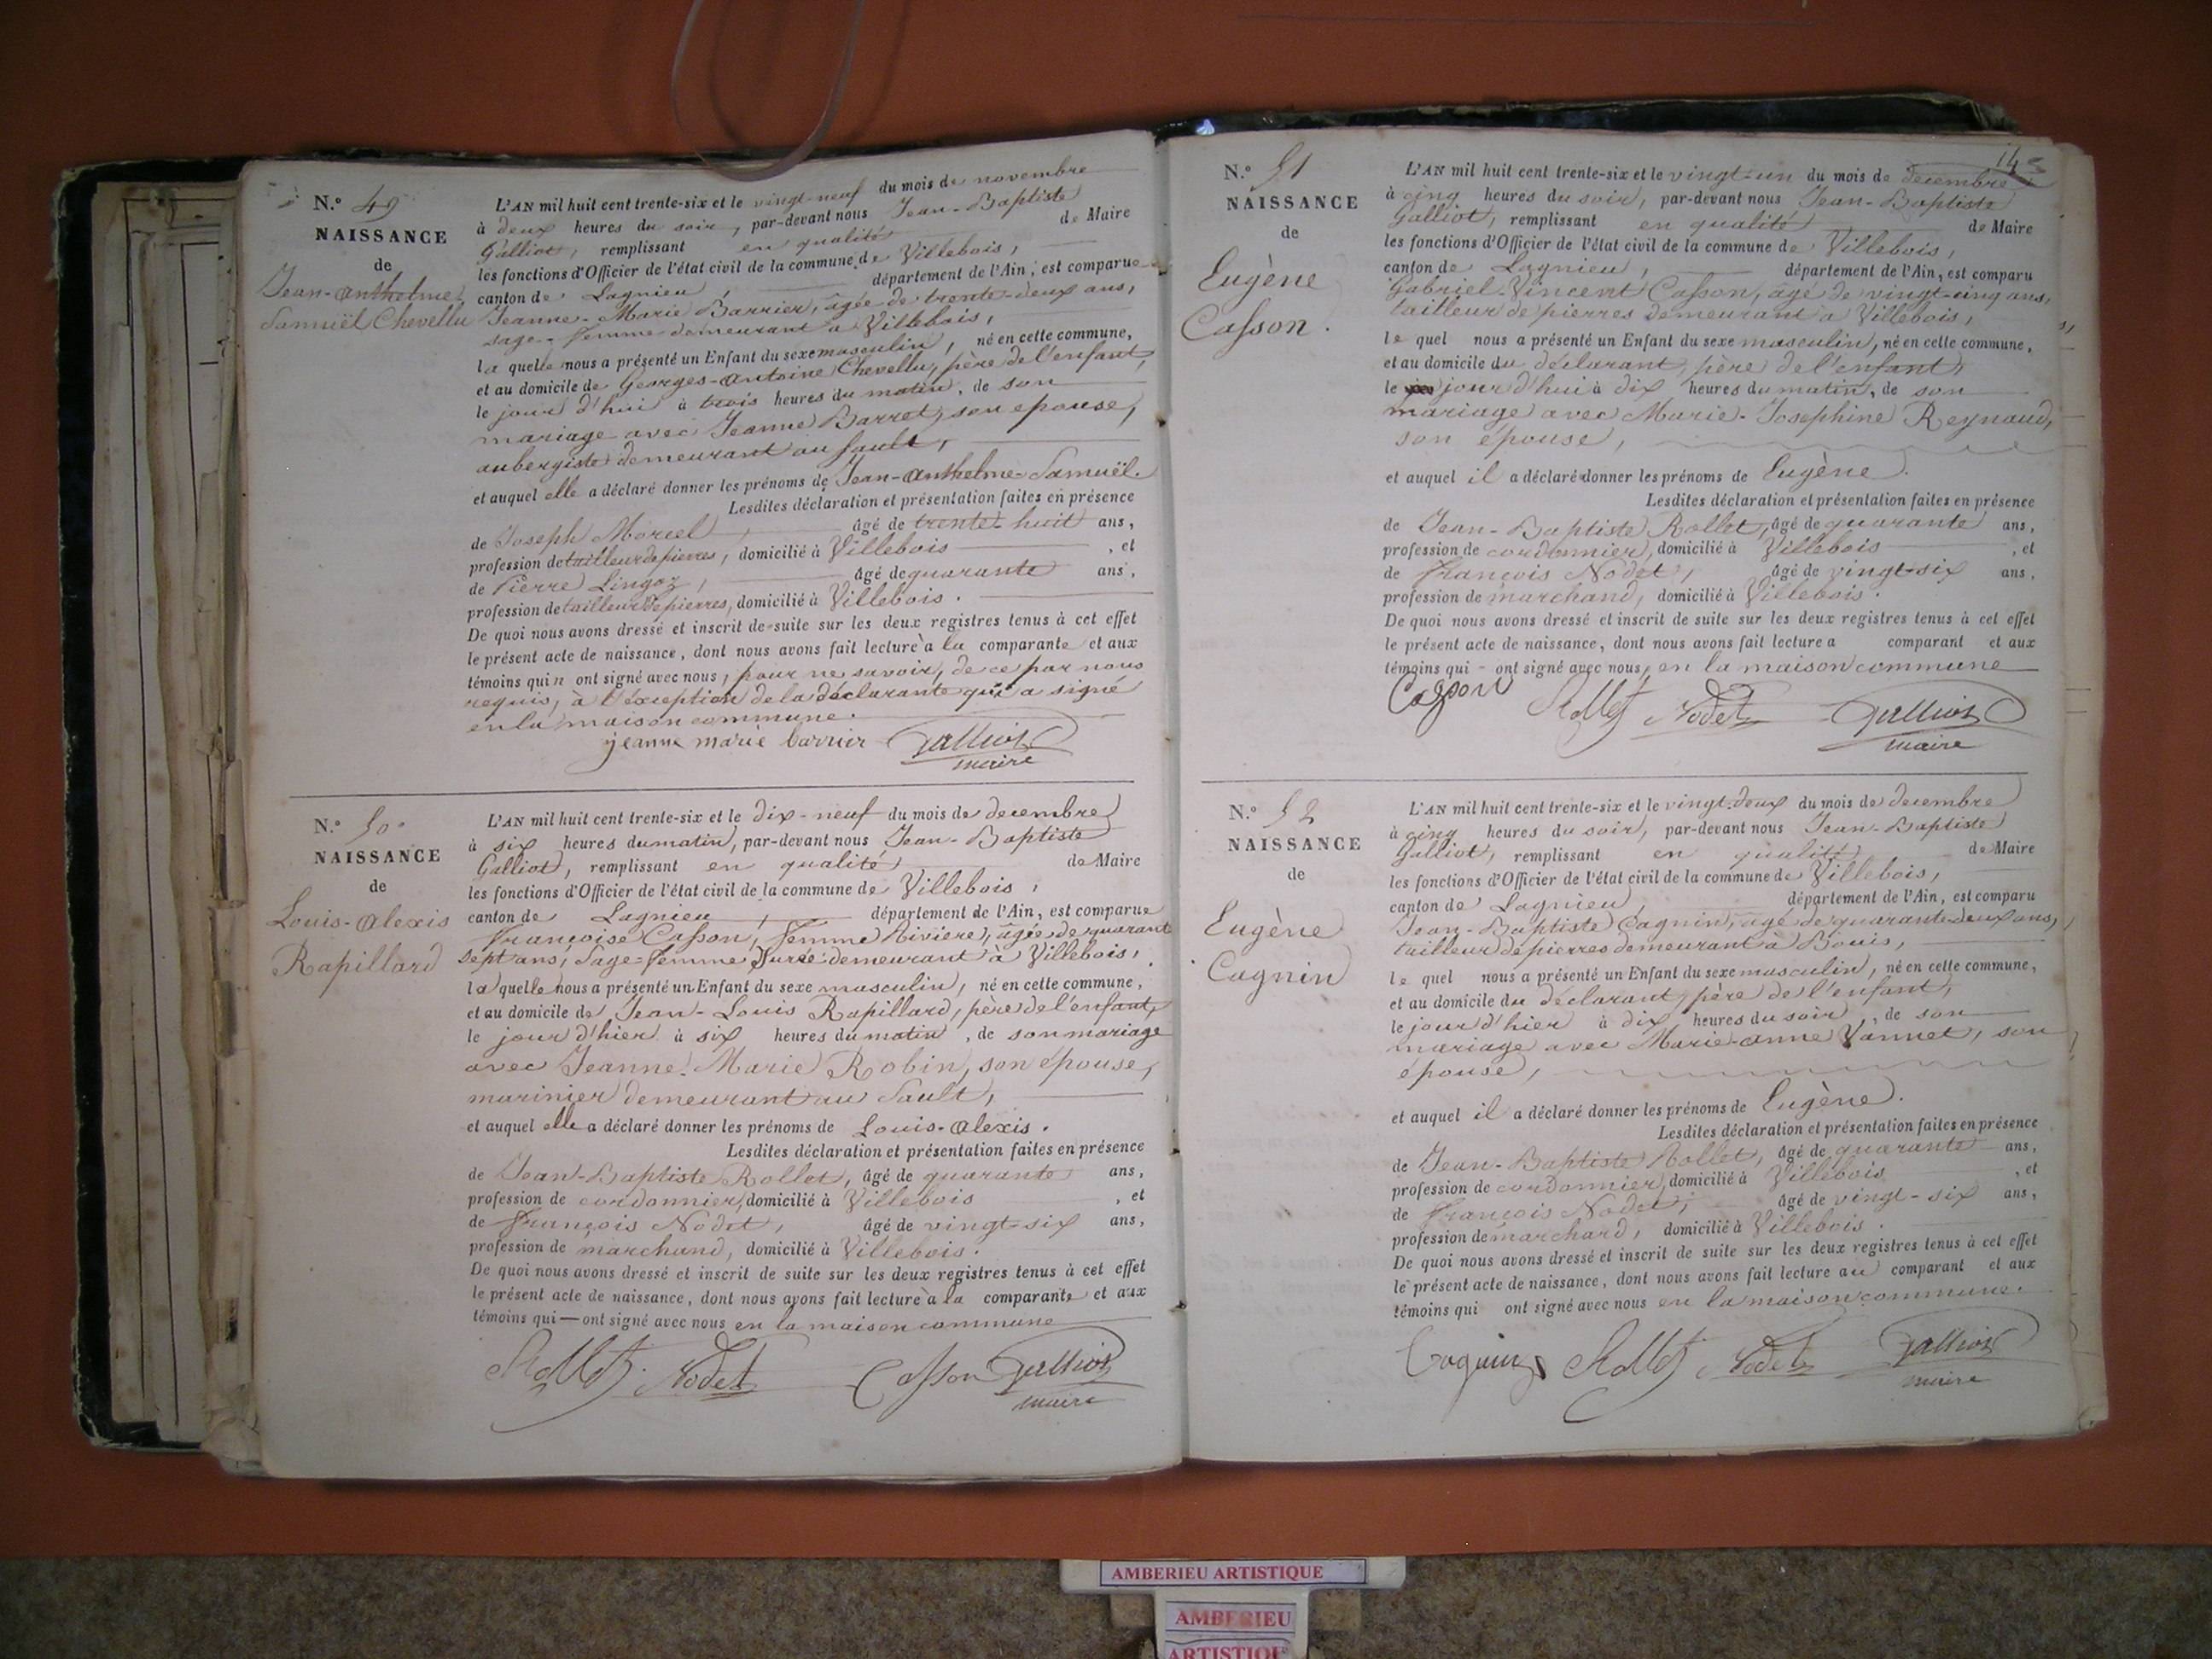 N.° 49
NAISSANCE
de
Jean-Anthelme
Samuël Chevellu
L'AN mil huit cent trente-six et le vingt-neuf du mois de novembre
à deux heures du soir, par-devant nous Jean-Baptiste
Galliot, remplissant en qualité de Maire
les fonctions d'Officier de l'état civil de la commune de Villebois,
canton de Lagnieu, département de l'Ain, est comparue
Jeanne-Marie Barrier, âgée de trente-deux ans,
sage-femme demeurant à Villebois,
la quelle nous a présenté un Enfant du sexe masculin, né en cette commune,
et au domicile de Georges-Antoine Chevellu, père de l'enfant,
le jour d'hui à trois heures du matin, de son
mariage avec Jeanne Barret, son epouse,
aubergiste demeurant au Sault,
et auquel elle a déclaré donner les prénoms de Jean-Anthelme-Samuël.
Lesdites déclaration et présentation faites en présence
de Joseph Morel, âgé de trente-huit ans,
profession de tailleur de pierres, domicilié à Villebois, et
de Pierre Lingoz, âgé de quarante ans,
profession de tailleur de pierres, domicilié à Villebois.
De quoi nous avons dressé et inscrit de suite sur les deux registres tenus à cet effet
le présent acte de naissance, dont nous avons fait lecture à la comparante et aux
témoins qui n ont signé avec nous, pour ne savoir, de ce par nous
requis, à l'éxception de la déclarante qui a signé
en la maison commune.
jeanne marie barrier Galliot
maire
N.° 50
NAISSANCE
de
Louis-Alexis
Rapillard
L'AN mil huit cent trente-six et le dix-neuf du mois de decembre
à six heures du matin, par-devant nous Jean-Baptiste
Galliot, remplissant en qualité de Maire
les fonctions d'Officier de l'état civil de la commune de Villebois,
canton de Lagnieu, département de l'Ain, est comparue
Françoise Casson, femme Riviere, âgée de quarant
sept ans, sage-femme Jurée demeurant à Villebois,
la quelle nous a présenté un Enfant du sexe masculin, né en cette commune,
et au domicile de Jean-Louis Rapillard, père de l'enfant,
le jour d'hier à six heures du matin, de son mariage
avec Jeanne Marie Robin, son épouse,
marinier demeurant au Sault,
et auquel elle a déclaré donner les prénoms de Louis-Alexis.
Lesdites déclaration et présentation faites en présence
de Jean-Baptiste Rollet, âgé de quarante ans,
profession de cordonnier, domicilié à Villebois, et
de François Nodet, âgé de vingt-six ans,
profession de marchand, domicilié à Villebois.
De quoi nous avons dressé et inscrit de suite sur les deux registres tenus à cet effet
le présent acte de naissance, dont nous avons fait lecture à la comparante et aux
témoins qui — ont signé avec nous en la maison commune
Rollet Nodet Casson Galliot
maire
14
N.° 51
NAISSANCE
de
Eugène
Casson.
L'AN mil huit cent trente-six et le vingt-un du mois de decembre
à cinq heures du soir, par-devant nous Jean-Baptiste
Galliot, remplissant en qualité de Maire
les fonctions d'Officier de l'état civil de la commune de Villebois,
canton de Lagnieu, département de l'Ain, est comparu
Gabriel-Vincent Casson, âgé de vingt-cinq ans,
tailleur de pierres demeurant à Villebois,
le quel nous a présenté un Enfant du sexe masculin, né en cette commune,
et au domicile du déclarant, père de l'enfant,
le jour d'hui à dix heures du matin, de son
mariage avec Marie-Josephine Reynaud,
son épouse,
et auquel il a déclaré donner les prénoms de Eugène.
Lesdites déclaration et présentation faites en présence
de Jean-Baptiste Rollet, âgé de quarante ans,
profession de cordonnier, domicilié à Villebois, et
de François Nodet, âgé de vingt-six ans,
profession de marchand, domicilié à Villebois.
De quoi nous avons dressé et inscrit de suite sur les deux registres tenus à cet effet
le présent acte de naissance, dont nous avons fait lecture a comparant et aux
témoins qui - ont signé avec nous, en la maison commune
Casson Rollet Nodet Galliot
maire
N.° 52
NAISSANCE
de
Eugène
Cagnin
L'AN mil huit cent trente-six et le vingt-deux du mois de decembre
à cinq heures du soir, par-devant nous Jean-Baptiste
Galliot, remplissant en qualité de Maire
les fonctions d'Officier de l'état civil de la commune de Villebois,
canton de Lagnieu, département de l'Ain, est comparu
Jean-Baptiste Cagnin, âgé de quarante-deux ans,
tailleur de pierres demeurant à Bouis,
le quel nous a présenté un Enfant du sexe masculin, né en cette commune,
et au domicile du déclarant, père de l'enfant,
le jour d'hier à dix heures du soir, de son
mariage avec Marie-Anne Vannet, son
épouse,
et auquel il a déclaré donner les prénoms de Eugène.
Lesdites déclaration et présentation faites en présence
de Jean-Baptiste Rollet, âgé de quarante ans,
profession de cordonnier, domicilié à Villebois, et
de François Nodet, âgé de vingt-six ans,
profession de marchand, domicilié à Villebois.
De quoi nous avons dressé et inscrit de suite sur les deux registres tenus à cet effet
le présent acte de naissance, dont nous avons fait lecture au comparant et aux
témoins qui ont signé avec nous en la maison commune.
Cagnin Rollet Nodet Galliot
maire
AMBERIEU ARTISTIQUE
AMBERIEU
ARTISTIQUE